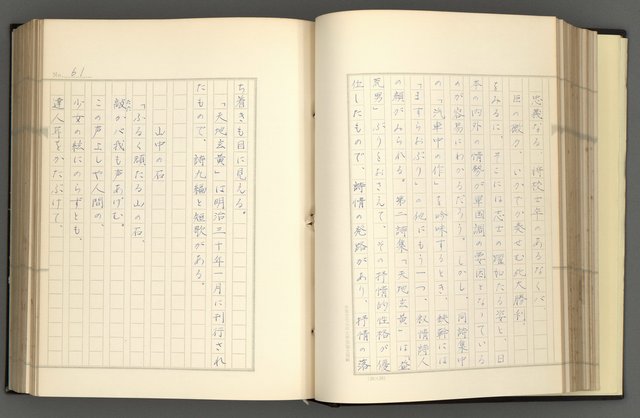 忠義なる
臣の激り、いかでか奏せむ此大勝利。
をみるに、そこには志士の
本の内外の情勢が軍国調の要因となっている
のが容易にわかるだろう。しかし、同詩集中
の「汽車中の作」を吟味するとき、鉄幹には
「ますらおぶり」の他にもう一つ、叙情詩人
の顔がみられる。第二詩集「天地玄黄」は「益
荒男」ぶりをおさえて、その抒情的性格が優
位したもので、詩情の発路があり、抒情の落
No. 61
ち着きも目に見える。
「天地玄黄」は明治三十年一月に刊行され
たもので、詩九編と短歌がある。
山中の石
「ふるく頑たる山の石、
敲かバ我も声あげむ。
この声よしや人間の、
少女の絃にのらずとも、
達人耳をかたぶけて、